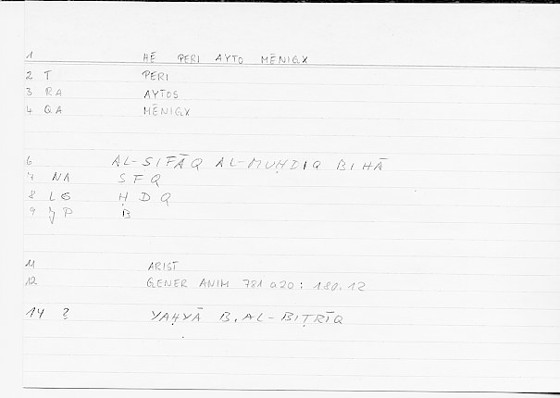 1 HĒ PERI AYTO MĒNIGX
2 T PERI
3 RA AYTOS
4 QA MĒNIGX
6 AL-SIFĀQ AL-MUḤDIQ BIHĀ
7 NA SFQ
8 LG ḤDQ
9 JP B
11 ARIST
12 GENER ANIM 781a20: 180.12
14 ? YAḤYĀ B. AL-BIṬRĪQ